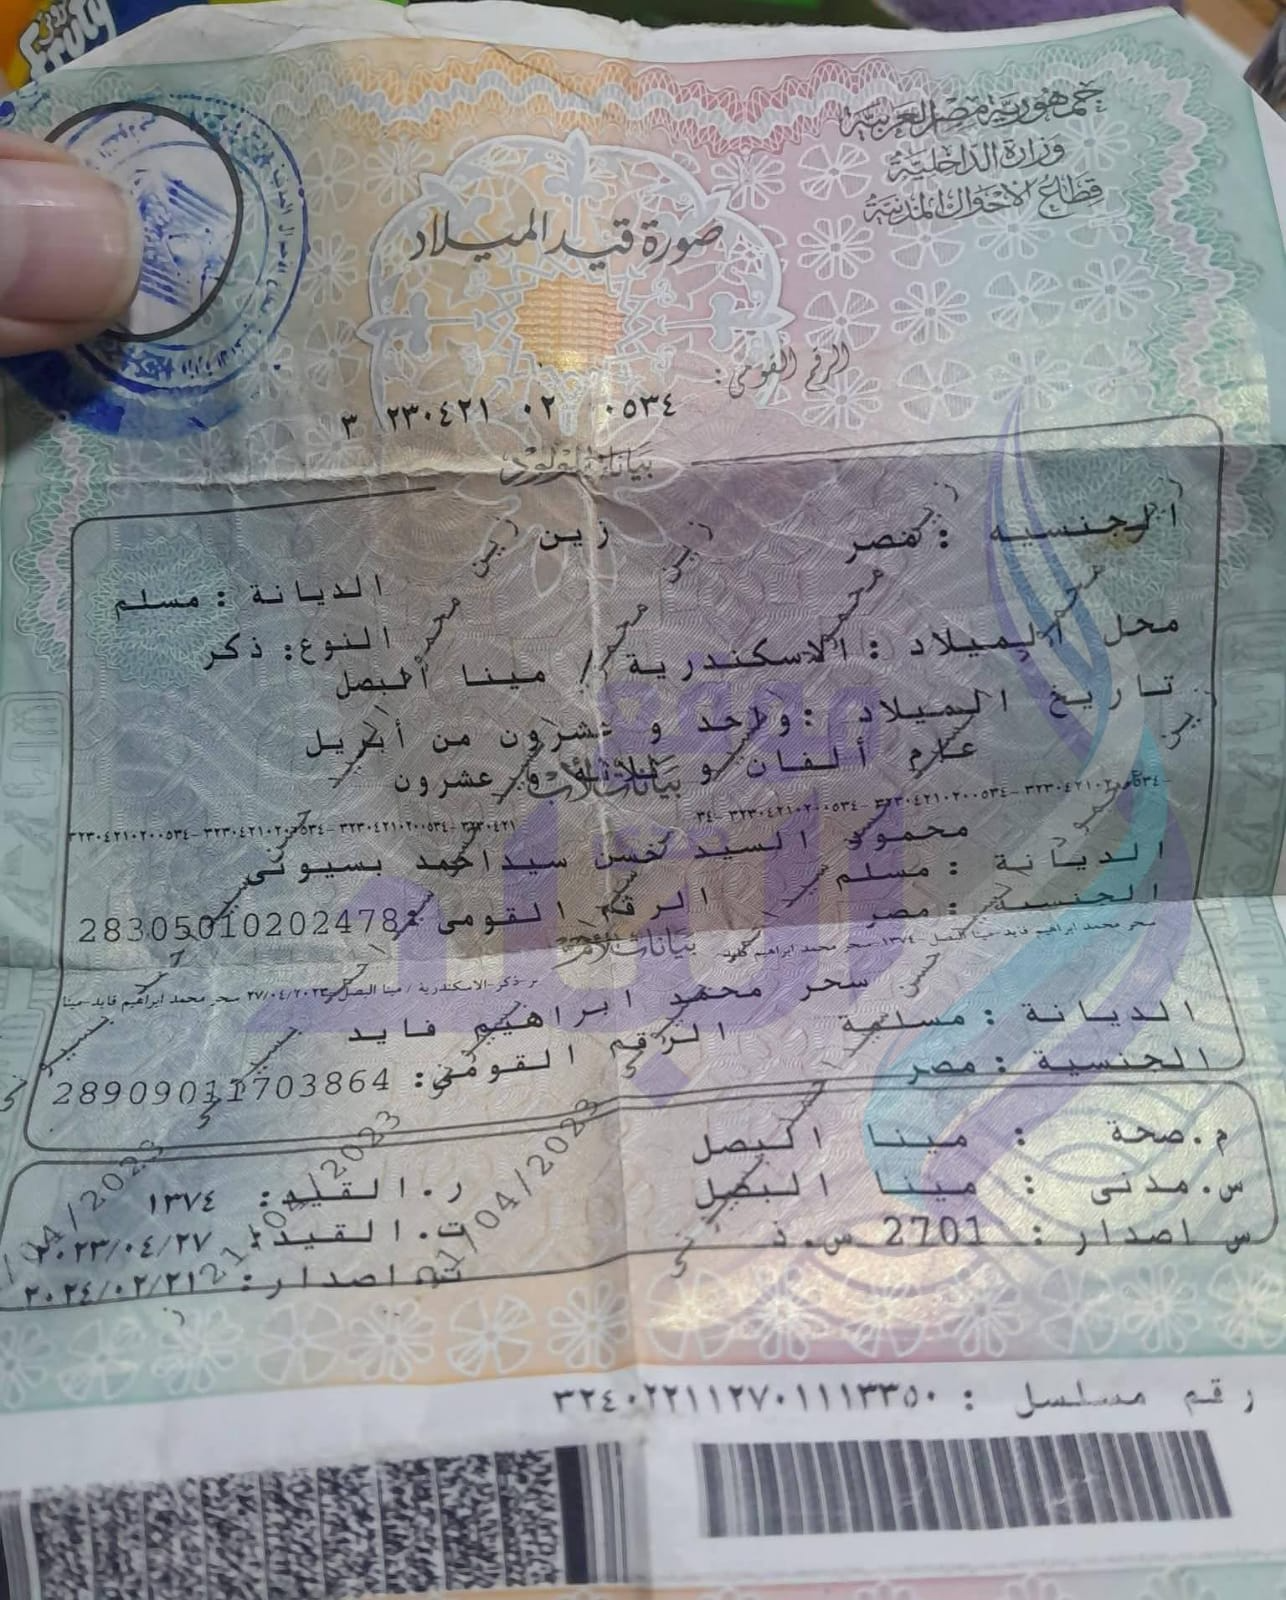 جمهورية مصر العربية
وزارة الداخلية
قطاع الأحوال المدنية
صورة قيد الميلاد
الرقم القومى:
٣ ٢٣٠٤٢١ ٠٢ ٠٥٣٤
بيانات المولود
زين
الجنسيه : مصر
الديانة : مسلم
محل الميلاد : الاسكندرية / مينا البصل
النوع: ذكر
تاريخ الميلاد : واحد و عشرون من أبريل
عام ألفان و ثلاثة و عشرون
بيانات الأب
محمود السيد حسن سيداحمد بسيونى
الديانة : مسلم
الجنسية : مصر
الرقم القومى: 28305010202478
بيانات الأم
سحر محمد ابراهيم فايد
الديانة : مسلمة
الجنسية : مصر
الرقم القومى: 28909011703864
م.صحة : مينا البصل
س.مدنى : مينا البصل
ر.القيد: ١٣٧٤
س اصدار: 2701 س.ذ
ت.القيد: ٢٠٢٣/٠٤/٢٧
ت اصدار: ٢٠٢٤/٠٢/٢١
21/04/2023
رقم مسلسل : ٣٢٤٠٢٢١١٢٧٠١١١٣٣٥٠